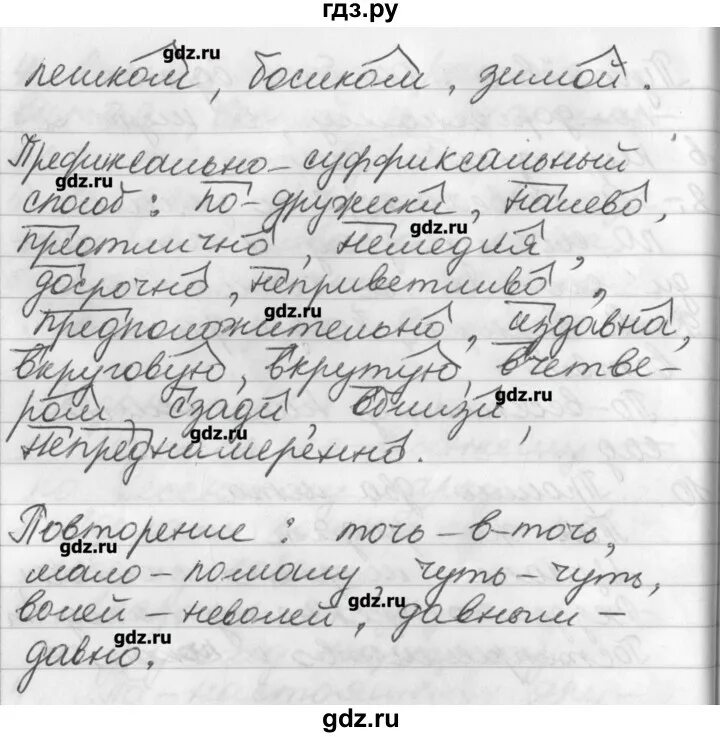 гдз.ру
gdz.ru
пешком, босиком, зимой.
Префиксально-суффиксальный
gdz.ru
способ: по-дружески, налево,
gdz.ru
преотлично, немедля,
досрочно, неприветливо,
gdz.ru
предположительно, издавна,
вкруговую, вкрутую, вчетве-
gdz.ru
ром, сзади, вблизи,
gdz.ru
непреднамеренно.
Повторение: точь-в-точь,
gdz.ru
мало-помалу, чуть-чуть,
gdz.ru
волей-неволей, давным-
gdz.ru
давно.
gdz.ru